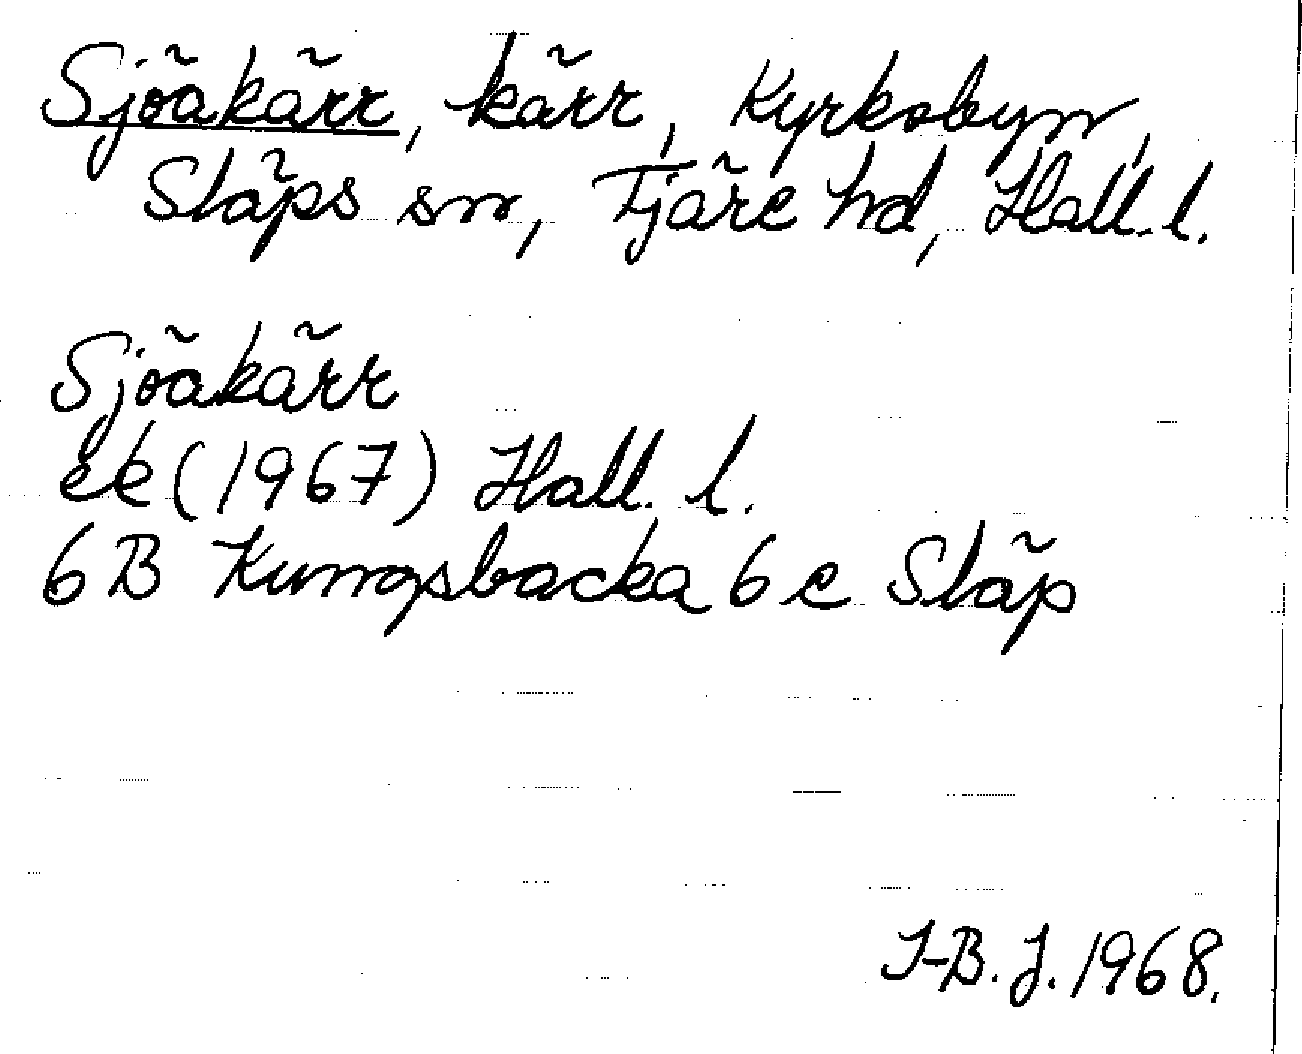 Sjöakärr, kärr, Kyrkobyn,
Släps sn, Fjäre hd, Hall. l.
Sjöakärr
ek (1967) Hall. l.
6 B Kungsbacka 6 c Släp
I-B. J. 1968.